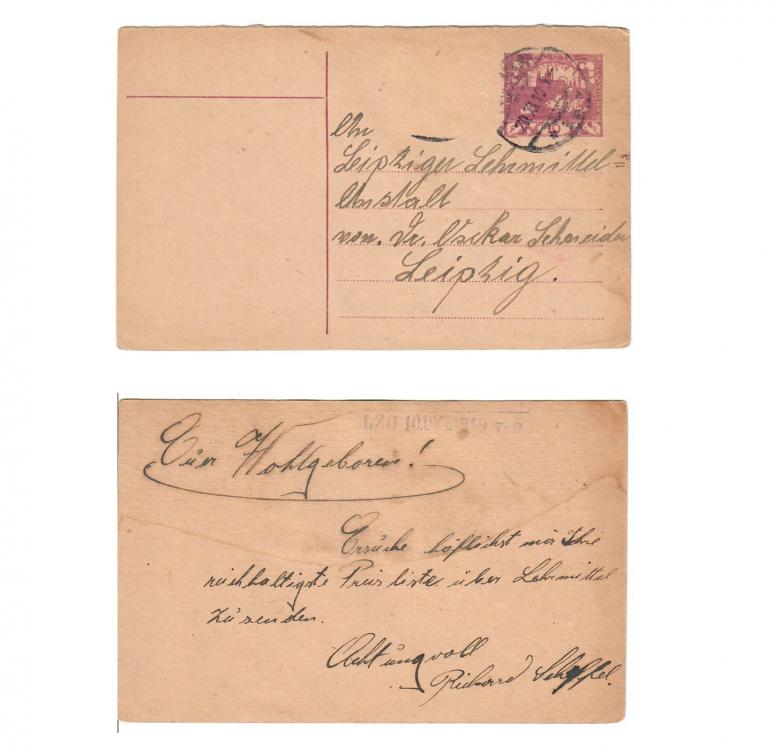 An
Leipziger Lehrmittel=
Anstalt
von. Dr. Oskar Schneider
Leipzig.
1919 7-
Euer Wohlgeboren!
Ersuche höflichst mir Ihre
reichhaltigste Preisliste über Lehrmittel
zusenden.
Achtungvoll
Richard